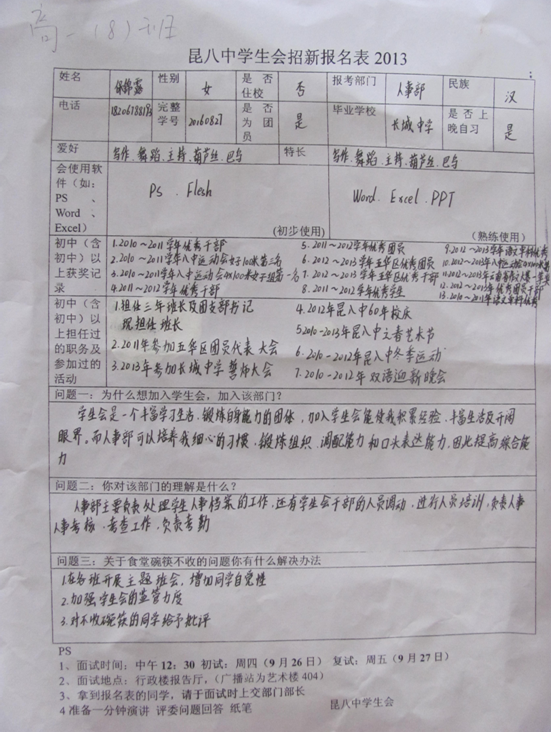 高一(8)班
昆八中学生会招新报名表 2013
姓名 性别 女 是否住校 否 报考部门 人事部 民族 汉
电话 完整学号 20160827 是否为团员 是 毕业学校 长城中学 是否上晚自习 是
爱好 写作、舞蹈、主持、葫芦丝、巴乌 特长 写作、舞蹈、主持、葫芦丝、巴乌
会使用软件(如:PS、Word、Excel) Ps、Flesh (初步使用) Word、Excel、PPT (熟练使用)
初中(含初中)以上获奖记录
1.2010~2011学年优秀干部
2.2010~2011学年八中运动会女子100米第二名
3.2010~2011学年八中运动会4x100米女子组第一名
4.2011~2012学年优秀干部
5.2011~2012学年优秀团员
6.2012~2013学年五华区优秀团员
7.2012~2013学年五华区优秀干部
8.2011~2012学年优秀学生
12.2012~2013学年优秀团干
初中(含初中)以上担任过的职务及参加过的活动
1.担任三年班长及团支部书记
现担任班长
2.2011年参加五华区团员代表大会
3.2013年参加长城中学誓师大会
4.2012年昆八中60年校庆
5.2010~2013年昆八中文春艺术节
6.2010~2012年昆八中冬季运动
7.2010~2012年双语迎新晚会
问题一:为什么想加入学生会,加入该部门?
学生会是一个丰富学习生活,锻炼自身能力的团体,加入学生会能使我积累经验,丰富生活及开阔
眼界。而人事部可以培养我细心的习惯,锻炼组织、调配能力和口头表达能力,因此提高综合能
力
问题二:你对该部门的理解是什么?
人事部主要负责处理学生人事档案的工作,还有学生会干部的人员调动,进行人员培训,负责人事
人事考核,考查工作,负责考勤
问题三:关于食堂碗筷不收的问题你有什么解决办法
1.在各班开展主题班会,增加同学自觉性
2.加强学生会的监管力度
3.对不收碗筷的同学给予批评
PS
1、面试时间:中午 12:30 初试:周四(9月26日) 复试:周五(9月27日)
2、面试地点:行政楼报告厅,(广播站为艺术楼 404)
3、拿到报名表的同学,请于面试时上交部门部长
4 准备一分钟演讲 评委问题回答 纸笔 昆八中学生会